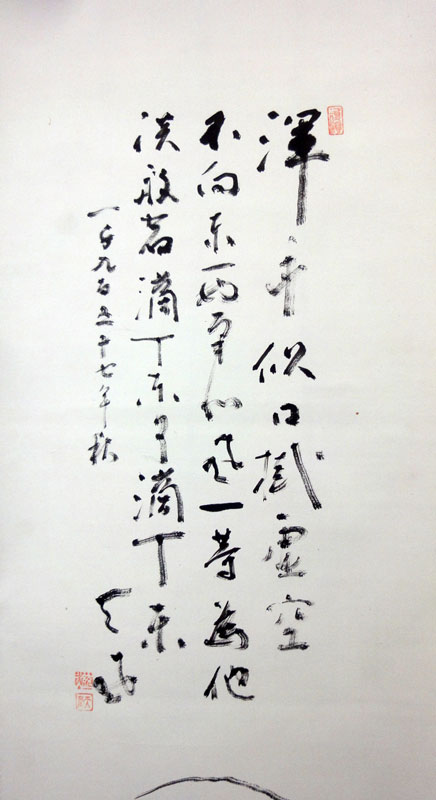 渾身似口掛虛空
不問東西南北風一等為他
談般若滴丁東了滴丁東
一千九百五十七年秋